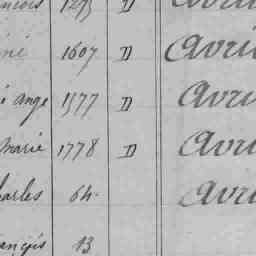 ançois 1293 D Avril
iné 1607 D Avri
é Ange 1577 D Avri
Marie 1778 D Avri
harles 64. Avri
ançois 13